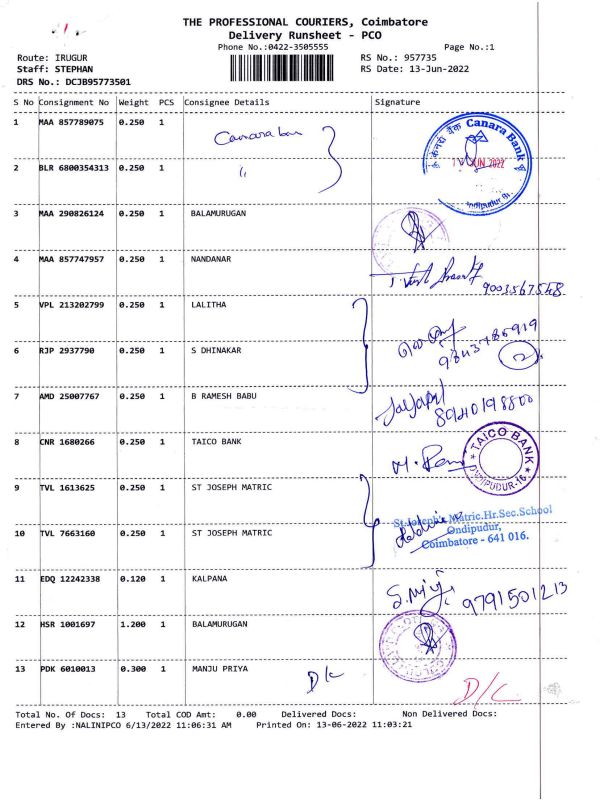 THE PROFESSIONAL COURIERS, Coimbatore
Delivery Runsheet - PCO
Phone No.:0422-3505555 Page No.:1
Route: IRUGUR RS No.: 957735
Staff: STEPHAN RS Date: 13-Jun-2022
DRS No.: DCJB95773501
S No Consignment No Weight PCS Consignee Details Signature
1 MAA 857789075 0.250 1 Canara Bank
केनरा बैंक Canara Bank
JUN 2022
2 BLR 6800354313 0.250 1 "
3 MAA 290826124 0.250 1 BALAMURUGAN
4 MAA 857747957 0.250 1 NANDANAR
9003567548
5 VPL 213202799 0.250 1 LALITHA
9843785919
6 RJP 2937790 0.250 1 S DHINAKAR 2
7 AMD 25007767 0.250 1 B RAMESH BABU
8940198800
8 CNR 1680266 0.250 1 TAICO BANK
TAICO BANK
9 TVL 1613625 0.250 1 ST JOSEPH MATRIC
St.Joseph's Matric.Hr.Sec.School
Ondipudur,
Coimbatore - 641 016.
10 TVL 7663160 0.250 1 ST JOSEPH MATRIC
11 EDQ 12242338 0.120 1 KALPANA
9791501213
12 HSR 1001697 1.200 1 BALAMURUGAN
13 PDK 6010013 0.300 1 MANJU PRIYA D/c
D/C
Total No. Of Docs: 13 Total COD Amt: 0.00 Delivered Docs: Non Delivered Docs:
Entered By :NALINIPCO 6/13/2022 11:06:31 AM Printed On: 13-06-2022 11:03:21